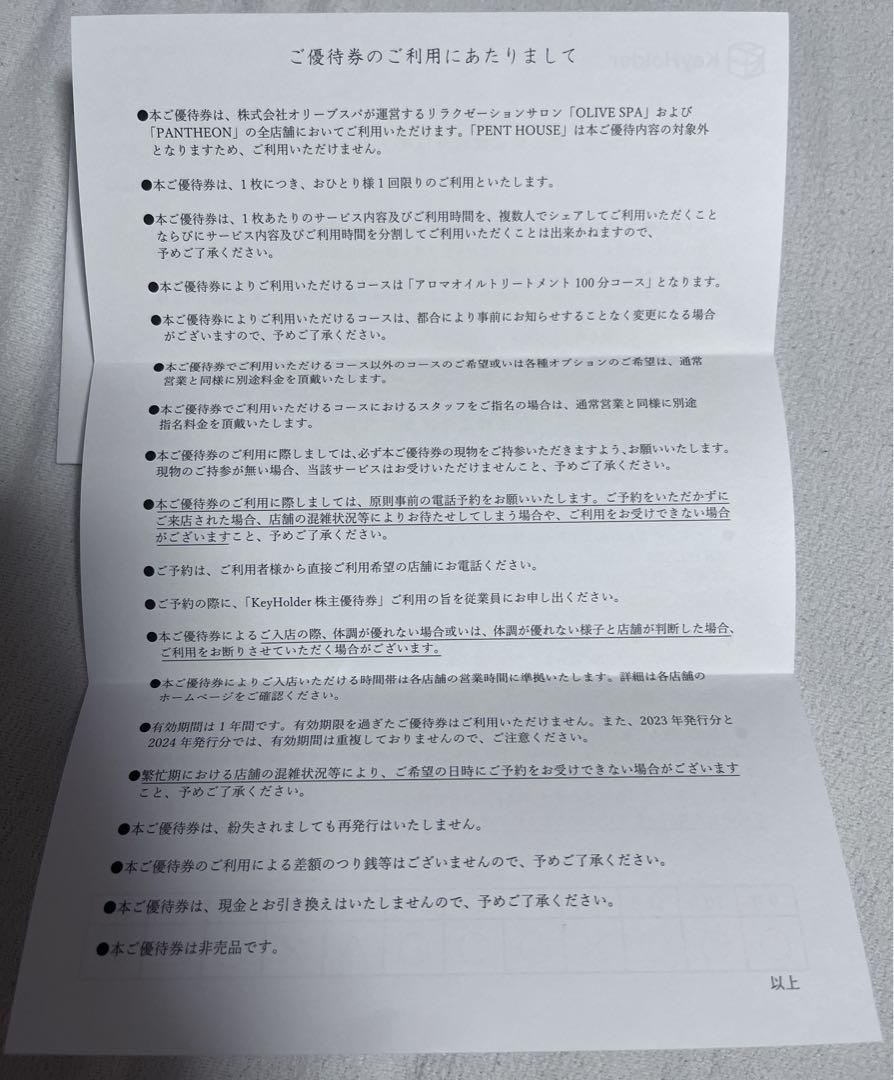 ご優待券のご利用にあたりまして
●本ご優待券は、株式会社オリーブスパが運営するリラクゼーションサロン「OLIVE SPA」および
「PANTHEON」の全店舗においてご利用いただけます。「PENT HOUSE」は本ご優待内容の対象外
となりますため、ご利用いただけません。
●本ご優待券は、1枚につき、おひとり様1回限りのご利用といたします。
●本ご優待券は、1枚あたりのサービス内容及びご利用時間を、複数人でシェアしてご利用いただくこと
ならびにサービス内容及びご利用時間を分割してご利用いただくことは出来かねますので、
予めご了承ください。
●本ご優待券によりご利用いただけるコースは「アロマオイルトリートメント100分コース」となります。
●本ご優待券によりご利用いただけるコースは、都合により事前にお知らせすることなく変更になる場合
がございますので、予めご了承ください。
●本ご優待券でご利用いただけるコース以外のコースのご希望或いは各種オプションのご希望は、通常
営業と同様に別途料金を頂戴いたします。
●本ご優待券でご利用いただけるコースにおけるスタッフをご指名の場合は、通常営業と同様に別途
指名料金を頂戴いたします。
●本ご優待券のご利用に際しましては、必ず本ご優待券の現物をご持参いただきますよう、お願いいたします。
現物のご持参が無い場合、当該サービスはお受けいただけませんこと、予めご了承ください。
●本ご優待券のご利用に際しましては、原則事前の電話予約をお願いいたします。ご予約をいただかずに
ご来店された場合、店舗の混雑状況等によりお待たせしてしまう場合や、ご利用をお受けできない場合
がございますこと、予めご了承ください。
●ご予約は、ご利用者様から直接ご利用希望の店舗にお電話ください。
●ご予約の際に、「KeyHolder 株主優待券」ご利用の旨を従業員にお申し出ください。
●本ご優待券によるご入店の際、体調が優れない場合或いは、体調が優れない様子と店舗が判断した場合、
ご利用をお断りさせていただく場合がございます。
●本ご優待券によりご入店いただける時間帯は各店舗の営業時間に準拠いたします。詳細は各店舗の
ホームページをご確認ください。
●有効期間は1年間です。有効期限を過ぎたご優待券はご利用いただけません。また、2023年発行分と
2024年発行分では、有効期間は重複しておりませんので、ご注意ください。
●繁忙期における店舗の混雑状況等により、ご希望の日時にご予約をお受けできない場合がございます
こと、予めご了承ください。
●本ご優待券は、紛失されましても再発行はいたしません。
●本ご優待券のご利用による差額のつり銭等はございませんので、予めご了承ください。
●本ご優待券は、現金とお引き換えはいたしませんので、予めご了承ください。
●本ご優待券は非売品です。
以上